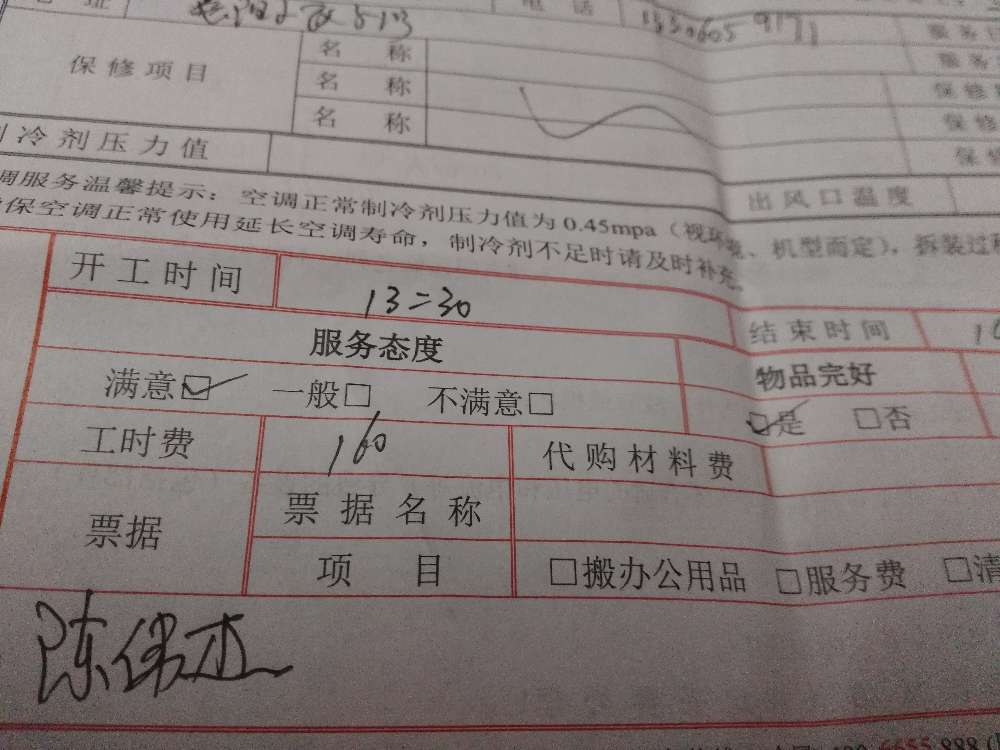 址 电 话 服务
保修项目 名 称 服务
名 称 保修
名 称 保修
冷剂压力值 保
调服务温馨提示：空调正常制冷剂压力值为0.45mpa（视环境、机型而定），拆装过
保空调正常使用延长空调寿命，制冷剂不足时请及时补充。
出风口温度
开工时间 13:30 结束时间
服务态度 物品完好
满意☑ 一般□ 不满意□ ☑是 □否
工时费 160 代购材料费
票据 票据名称
项 目 □搬办公用品 □服务费 □清
陈伟杰